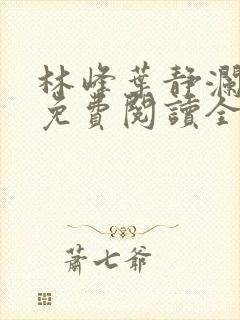 林峰葉靜瀾
免費閱讀全
蕭七爺